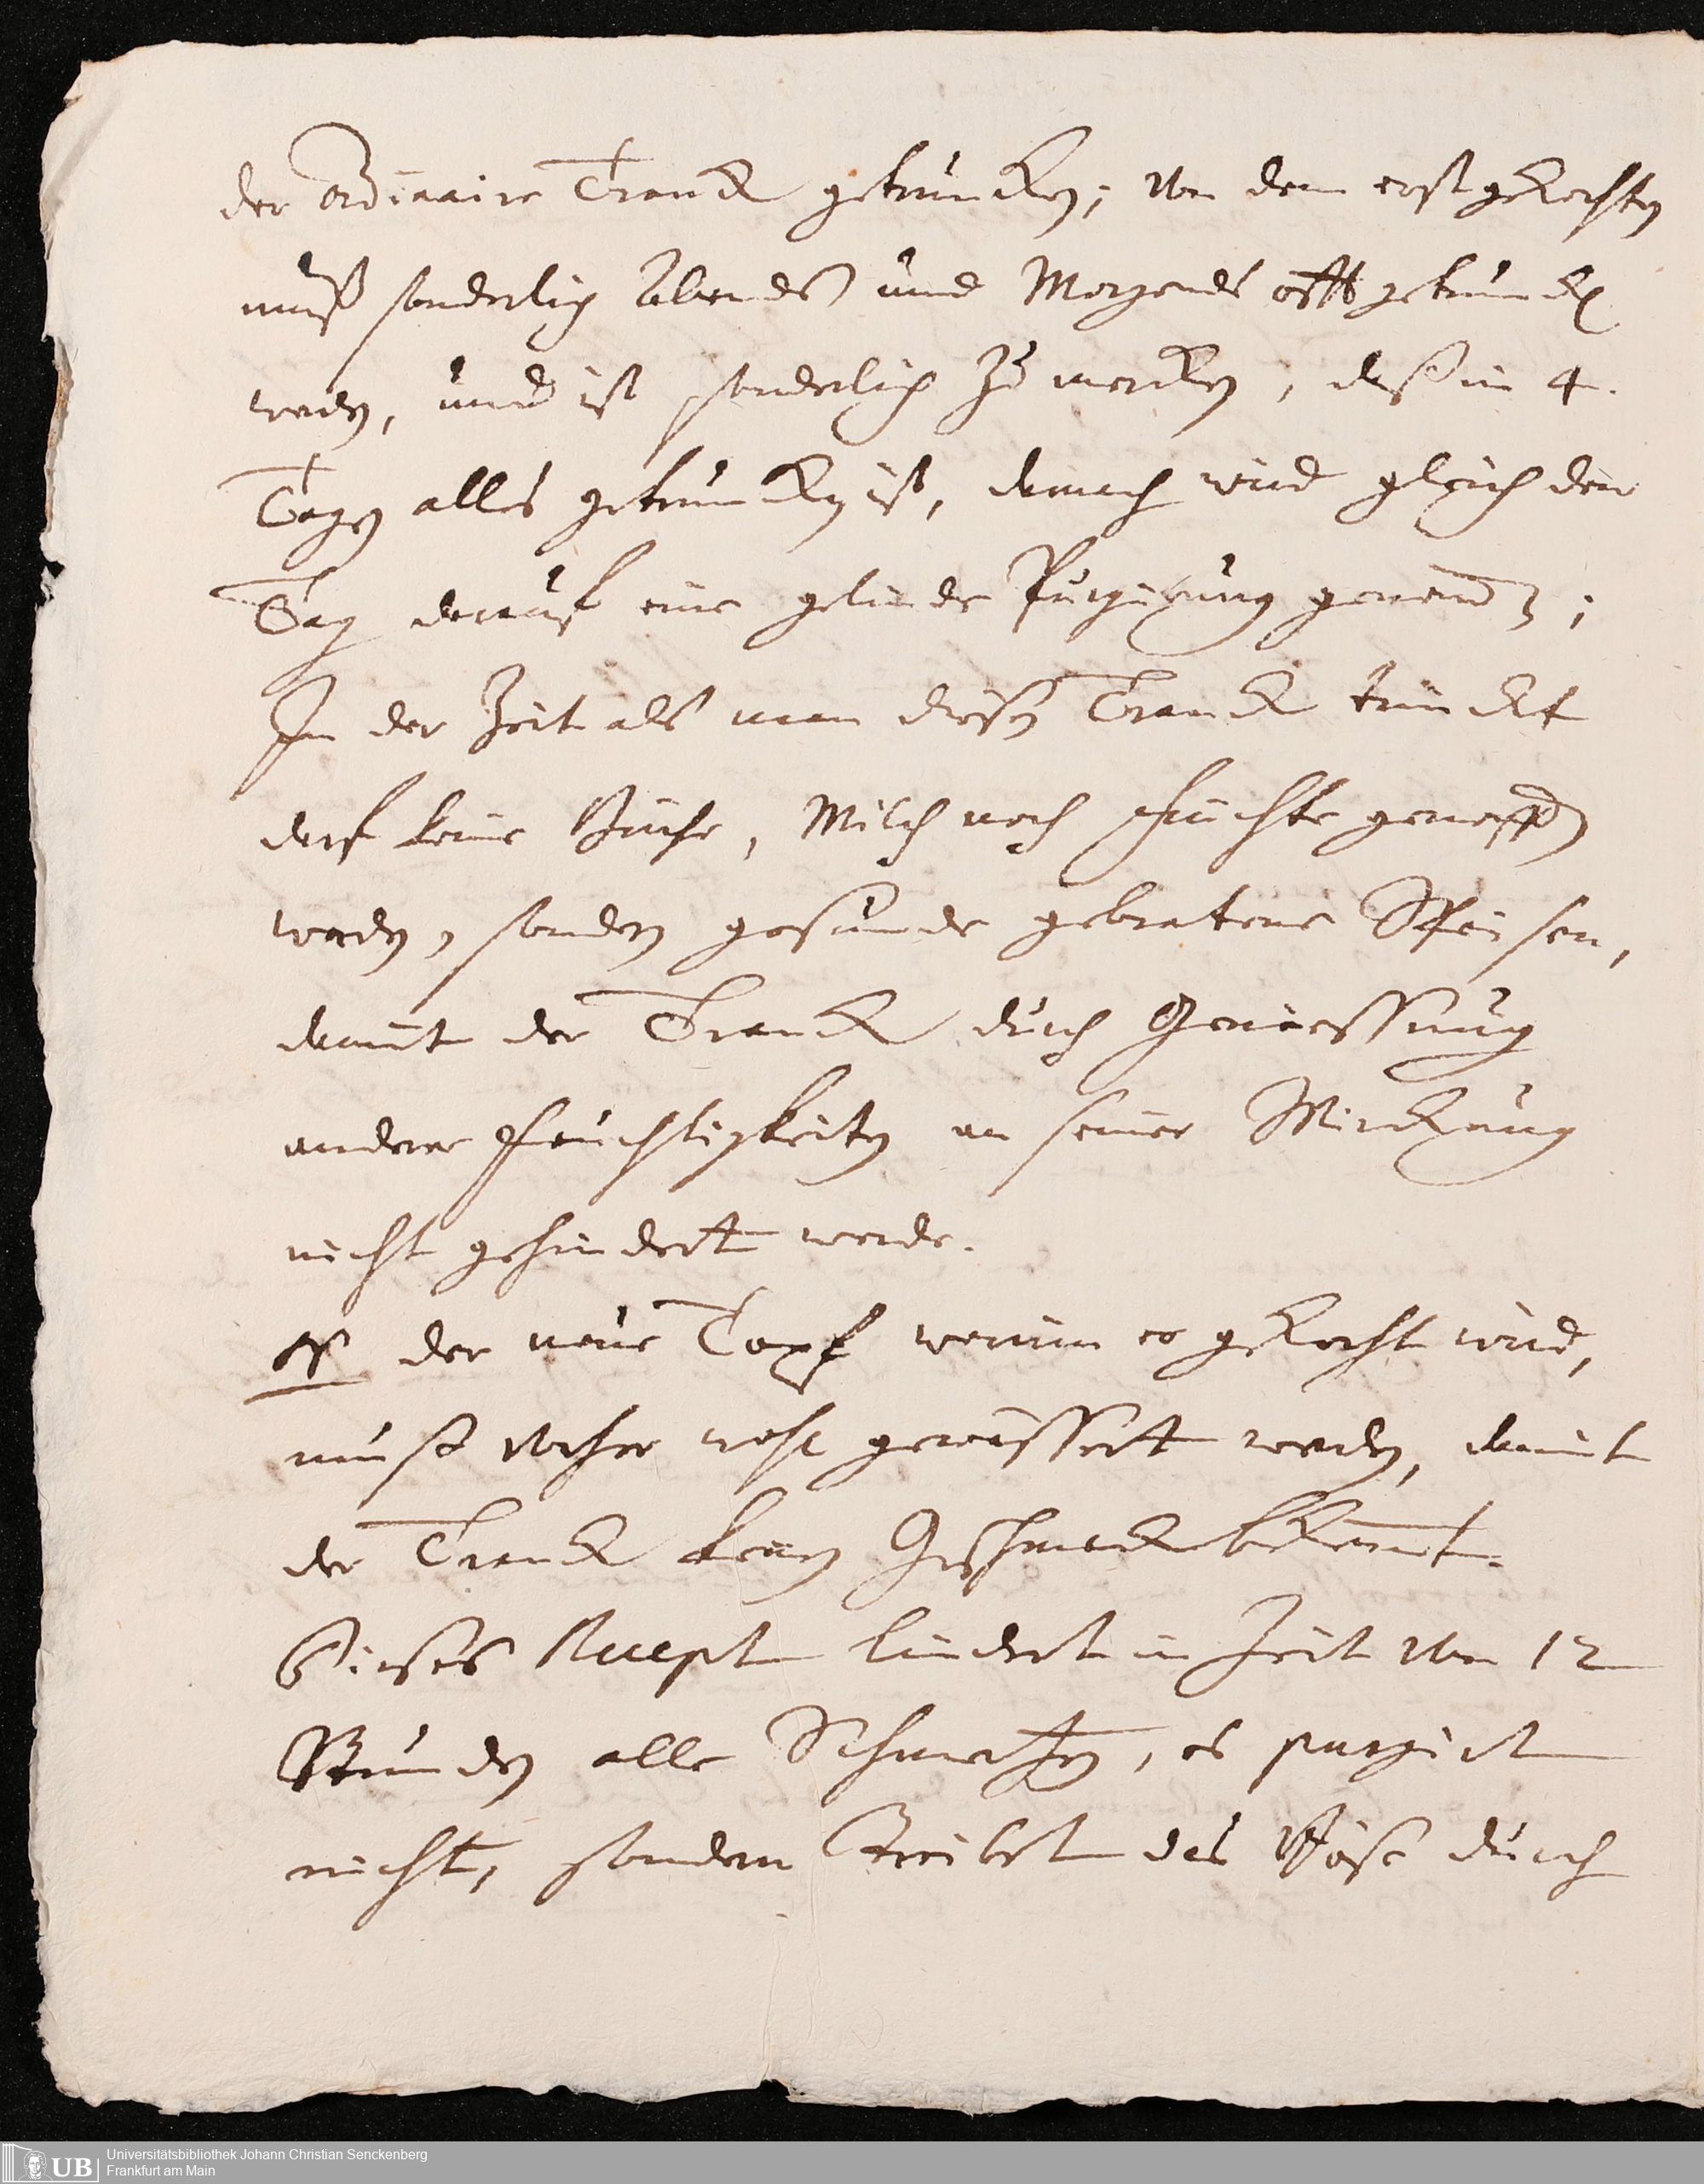 der ordinaire Tranck getruncken; Von dem erst gekochten
muß sonderlich Abends und Morgends offt getruncken
werden, und ist sonderlich zu mercken, daß in 4.
Tagen alles getruncken ist, darnach wird gleich den
Tag darauf eine gelinde Purgirung genommen;
In der Zeit als man diesen Tranck trincket
darf keine Brühe, Milch noch Früchte genossen
werden, sondern gesunde gebratene Speisen,
damit der Tranck durch Geniessung
anderer Feuchtigkeiten an seiner Wirckung
nicht gehindert werde.
NB der neue Topf worinn es gekocht wird,
muß vorher wohl gewässert werden, damit
der Tranck keinen Geschmack bekommt.
Dieses Recept lindert in Zeit Von 12
Stunden alle Schmertzen, es purgirt
nicht, sondern treibet das Böse durch
UB
Universitätsbibliothek Johann Christian Senckenberg
Frankfurt am Main